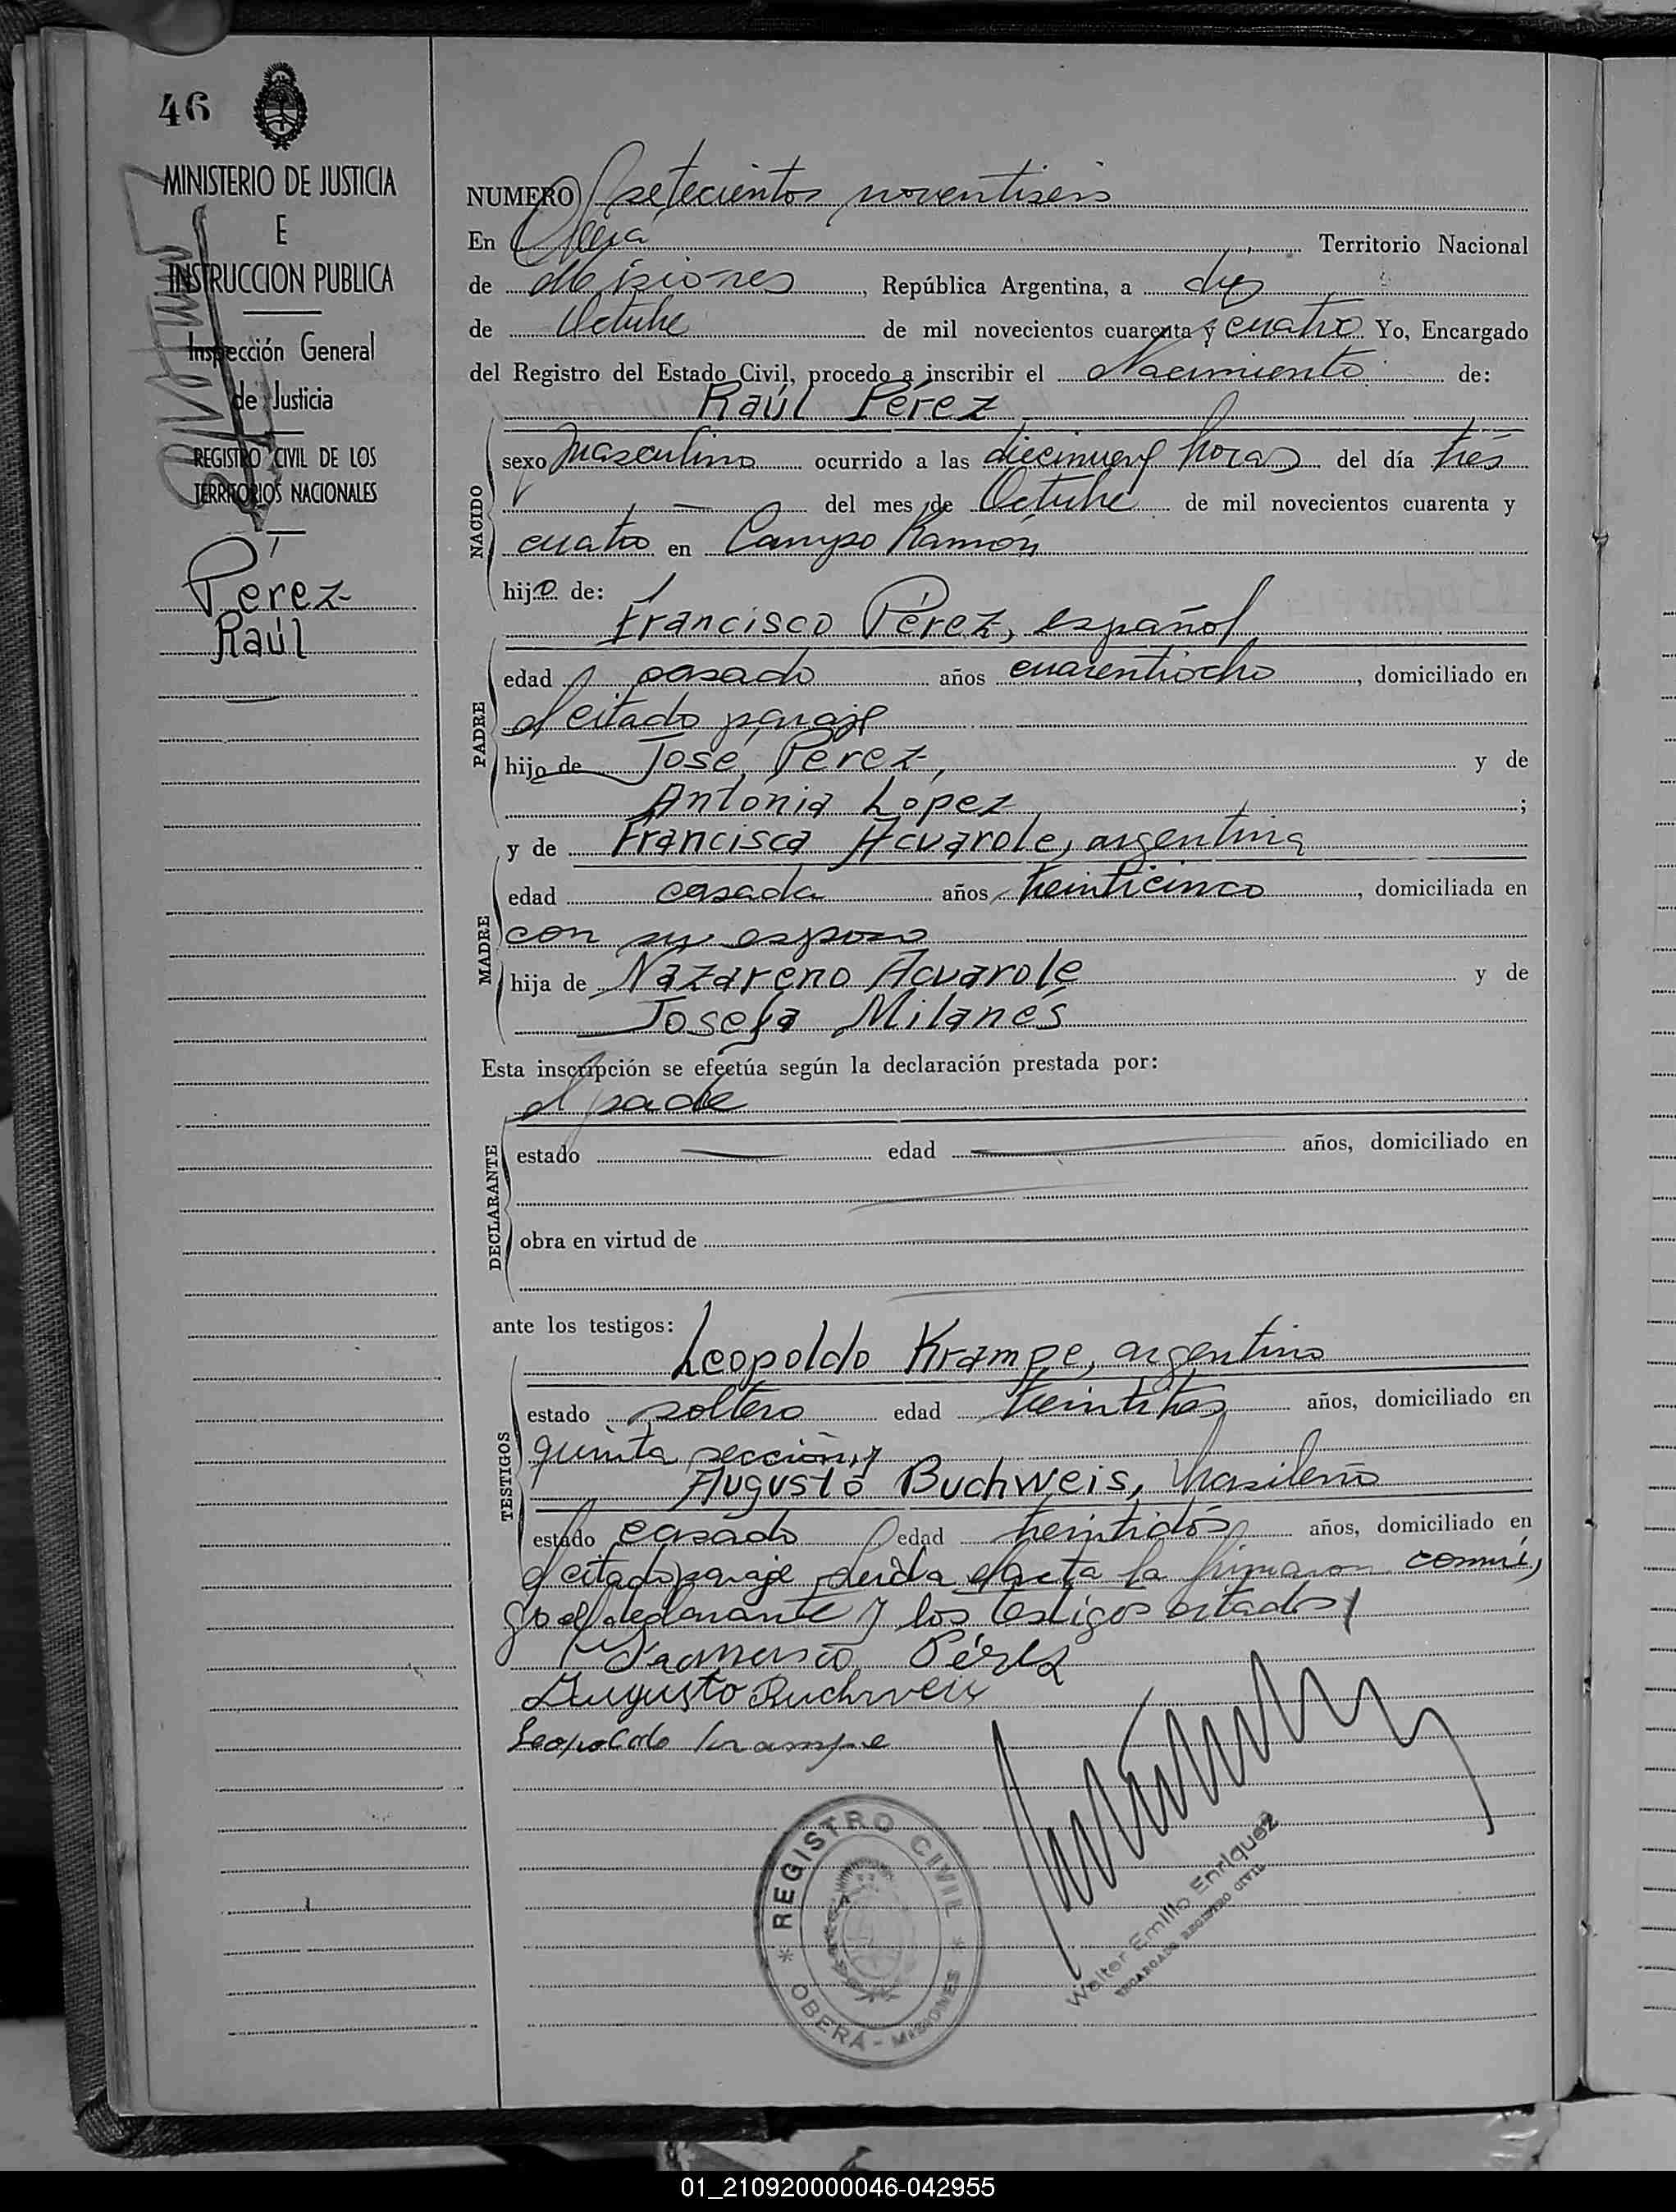 46
MINISTERIO DE JUSTICIA
E
INSTRUCCION PUBLICA
Inspección General
de Justicia
REGISTRO CIVIL DE LOS
TERRITORIOS NACIONALES
Perez
Raúl
NUMERO setecientos noventiseis
En Oberá Territorio Nacional
de Misiones, República Argentina, a diez
de Octubre de mil novecientos cuarenta y cuatro Yo, Encargado
del Registro del Estado Civil, procedo a inscribir el Nacimiento de:
Raúl Pérez
NACIDO
sexo Masculino ocurrido a las diecinueve horas del día tres
del mes de Octubre de mil novecientos cuarenta y
cuatro en Campo Ramón
hijo de:
Francisco Pérez, español
PADRE
edad casado años cuarentiocho, domiciliado en
el citado paraje
hijo de José Pérez, y de
Antonia López;
y de Francisca Acuarole, argentina
MADRE
edad casada años treinticinco, domiciliada en
con su esposo
hija de Nazareno Acuarole y de
Josefa Milanés
Esta inscripción se efectúa según la declaración prestada por:
el padre
DECLARANTE
estado edad años, domiciliado en
obra en virtud de
ante los testigos:
Leopoldo Krampe, argentino
TESTIGOS
estado soltero edad treintitres años, domiciliado en
quinta sección, y
Augusto Buchweis, brasileño
estado casado edad treintidós años, domiciliado en
el citado paraje. Leida el acta la firmaron conmi,
go el declarante y los testigos citados
Francisco Pérez
Augusto Buchweis
Leopoldo Krampe
REGISTRO CIVIL
OBERÁ - MISIONES
Walter Emilio Enriquez
ENCARGADO REGISTRO CIVIL
01_210920000046-042955